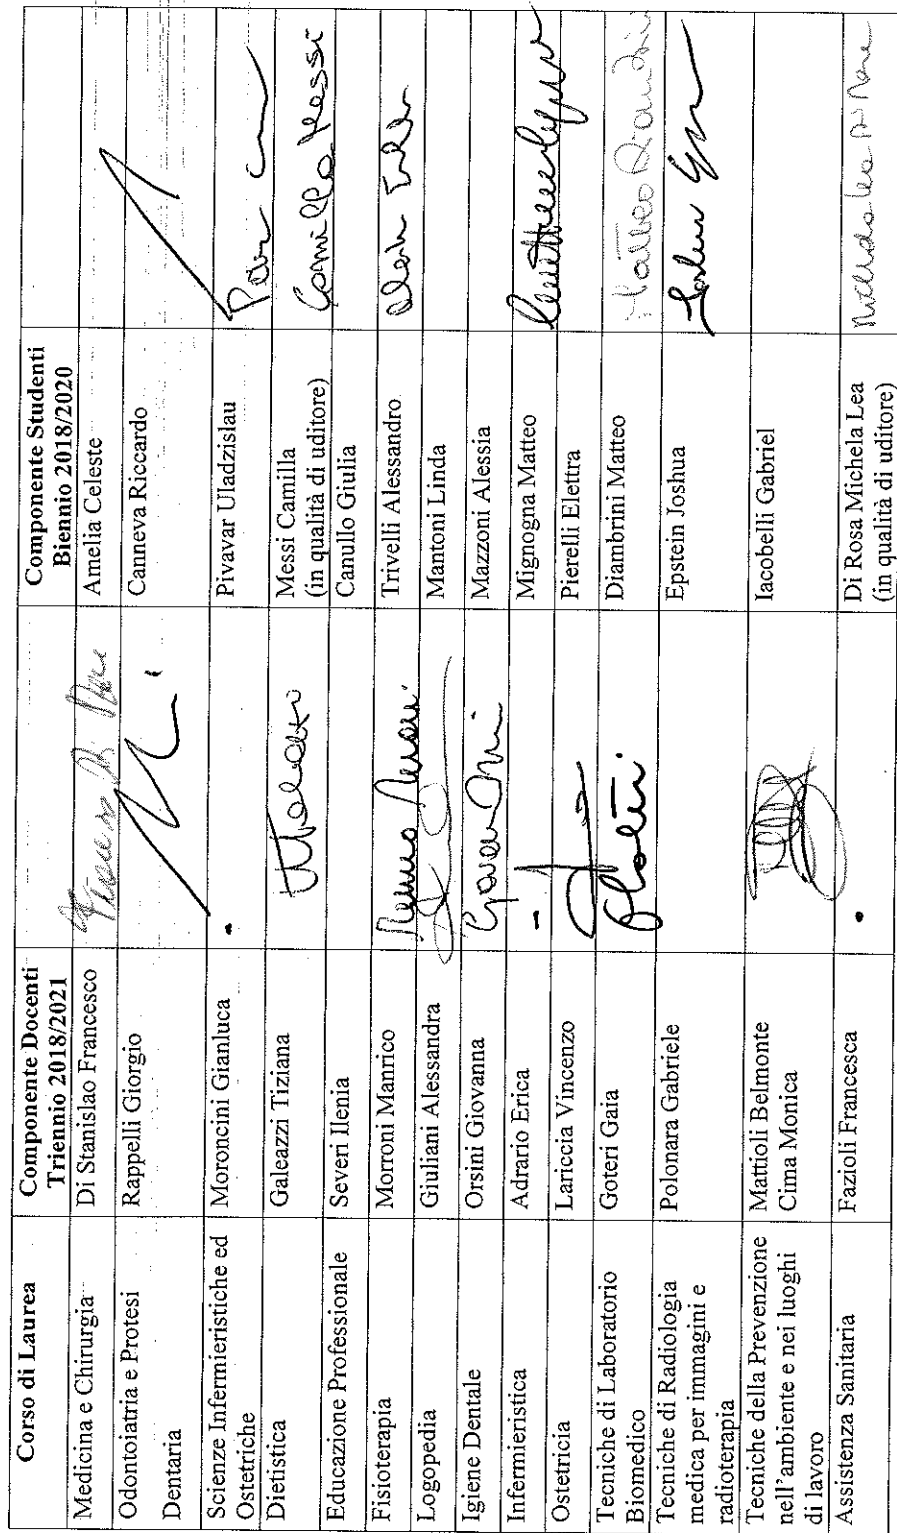 Corso di Laurea
Componente Docenti
Triennio 2018/2021
Componente Studenti
Biennio 2018/2020
Medicina e Chirurgia
Di Stanislao Francesco
Amelia Celeste
Odontoiatria e Protesi
Dentaria
Rappelli Giorgio
Canneva Riccardo
Scienze Infermieristiche ed
Ostetriche
Moroncini Gianluca
Pivavar Uladzislau
Dietistica
Galeazzi Tiziana
Messi Camilla
(in qualità di uditore)
Camilla Messi
Educazione Professionale
Severi Ilenia
Canullo Giulia
Fisioterapia
Morroni Manrico
Trivelli Alessandro
Logopedia
Giuliani Alessandra
Mantoni Linda
Igiene Dentale
Orsini Giovanna
Mazzoni Alessia
Infermieristica
Adrario Erica
Mignogna Matteo
Ostetricia
Lariccia Vincenzo
Pierelli Elettra
Tecniche di Laboratorio
Biomedico
Goteri Gaia
Diambrini Matteo
Matteo Diambrini
Tecniche di Radiologia
medica per immagini e
radioterapia
Polonara Gabriele
Epstein Joshua
Tecniche della Prevenzione
nell'ambiente e nei luoghi
di lavoro
Mattioli Belmonte
Cima Monica
Iacobelli Gabriel
Assistenza Sanitaria
Fazioli Francesca
Di Rosa Michela Lea
(in qualità di uditore)